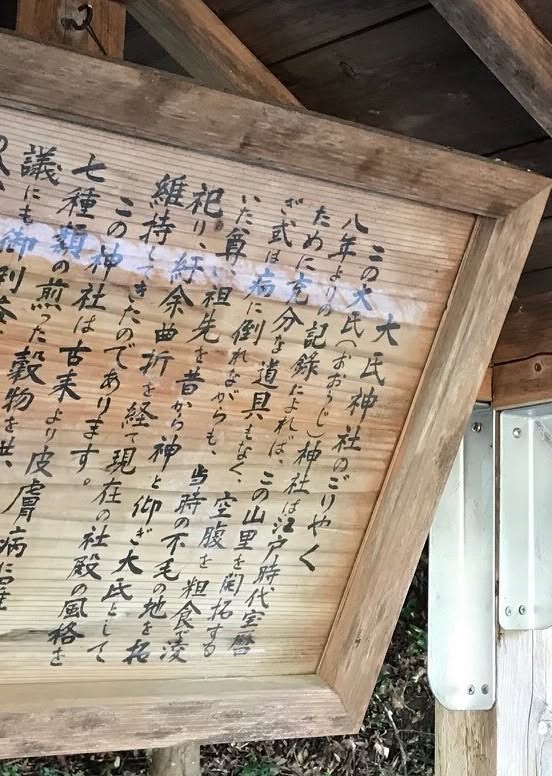 大氏神社のごりやく
この大氏(おおうじ)神社は江戸時代宝暦
八年よりの記録によれば、この山里を開拓する
ために充分な道具もなく、空腹を粗食で凌
ぎ、或は病に倒れながらも、当時の不毛の地を拓
いた尊い祖先を昔から神と仰ぎ大氏として
祀り、紆余曲折を経て現在の社殿の風格を
維持してきたのであります。
この神社は古来より皮膚病に
七種類の煎った穀物を
議にも御利